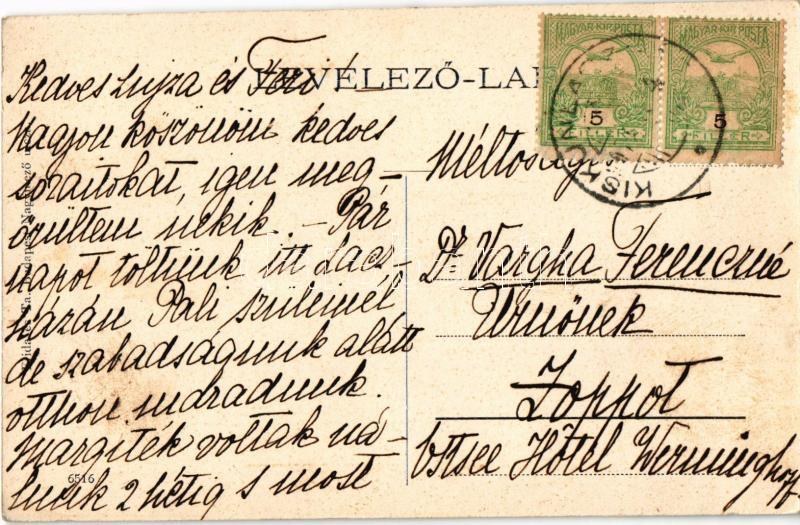 LEVELEZŐ-LAP
Kedves Lujza és Feri! —
Nagyon köszönöm kedves
soraitokat, igen meg-
örültem nekik. – Pár
napot töltünk itt Lacz-
házán Pali szüleinél
de szabadságunk alatt
otthon maradunk.
Margiték voltak ná-
lunk 2 hétig s most
6516
MAGYAR·KIR·POSTA
5
FILLÉR
MAGYAR·KIR·POSTA
5
FILLÉR
KISKUNLACZHÁZA
Méltóságos
Dr Vargha Ferenczné
Úrnőnek
Zoppot
Ostsee Hôtel Werminghoff